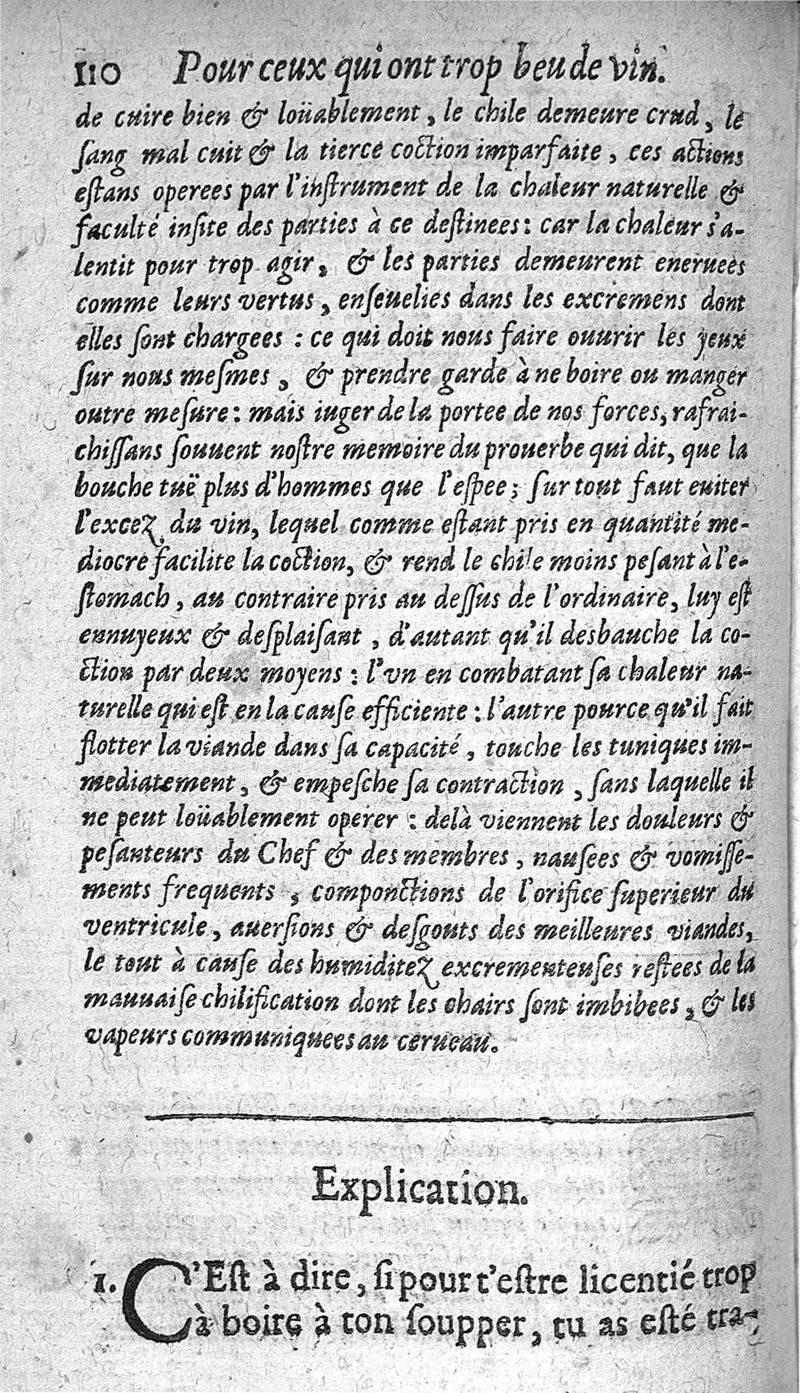 110 Pour ceux qui ont trop beu de vin.
de cuire bien & loüablement, le chile demeure crud, le
ſang mal cuit & la tierce coction imparfaite, ces actions
eſtans operees par l'inſtrument de la chaleur naturelle &
faculté inſite des parties à ce deſtinees: car la chaleur s'a-
lentit pour trop agir, & les parties demeurent eneruees
comme leurs vertus, enſeuelies dans les excremens dont
elles ſont chargees : ce qui doit nous faire ouurir les yeux
ſur nous meſmes, & prendre garde à ne boire ou manger
outre meſure: mais iuger de la portee de nos forces, rafrai-
chiſſans ſouuent noſtre memoire du prouerbe qui dit, que la
bouche tuë plus d'hommes que l'eſpee; ſur tout faut euiter
l'excez du vin, lequel comme eſtant pris en quantité me-
diocre facilite la coction, & rend le chile moins peſant à l'e-
ſtomach, au contraire pris au deſſus de l'ordinaire, luy eſt
ennuyeux & deſplaiſant, d'autant qu'il desbauche la co-
ction par deux moyens : l'vn en combatant ſa chaleur na-
turelle qui eſt en la cauſe efficiente : l'autre pource qu'il fait
flotter la viande dans ſa capacité, touche les tuniques im-
mediatement, & empeſche ſa contraction, ſans laquelle il
ne peut loüablement operer : delà viennent les douleurs &
peſanteurs du Chef & des membres, nauſees & vomiſſe-
ments frequents, componctions de l'orifice ſuperieur du
ventricule, auerſions & deſgouts des meilleures viandes,
le tout à cauſe des humiditez excrementeuſes reſtees de la
mauuaiſe chilification dont les chairs ſont imbibees, & les
vapeurs communiquees au cerueau.
Explication.
1. C'Eſt à dire, ſi pour t'eſtre licentié trop
à boire à ton ſoupper, tu as eſté tra-